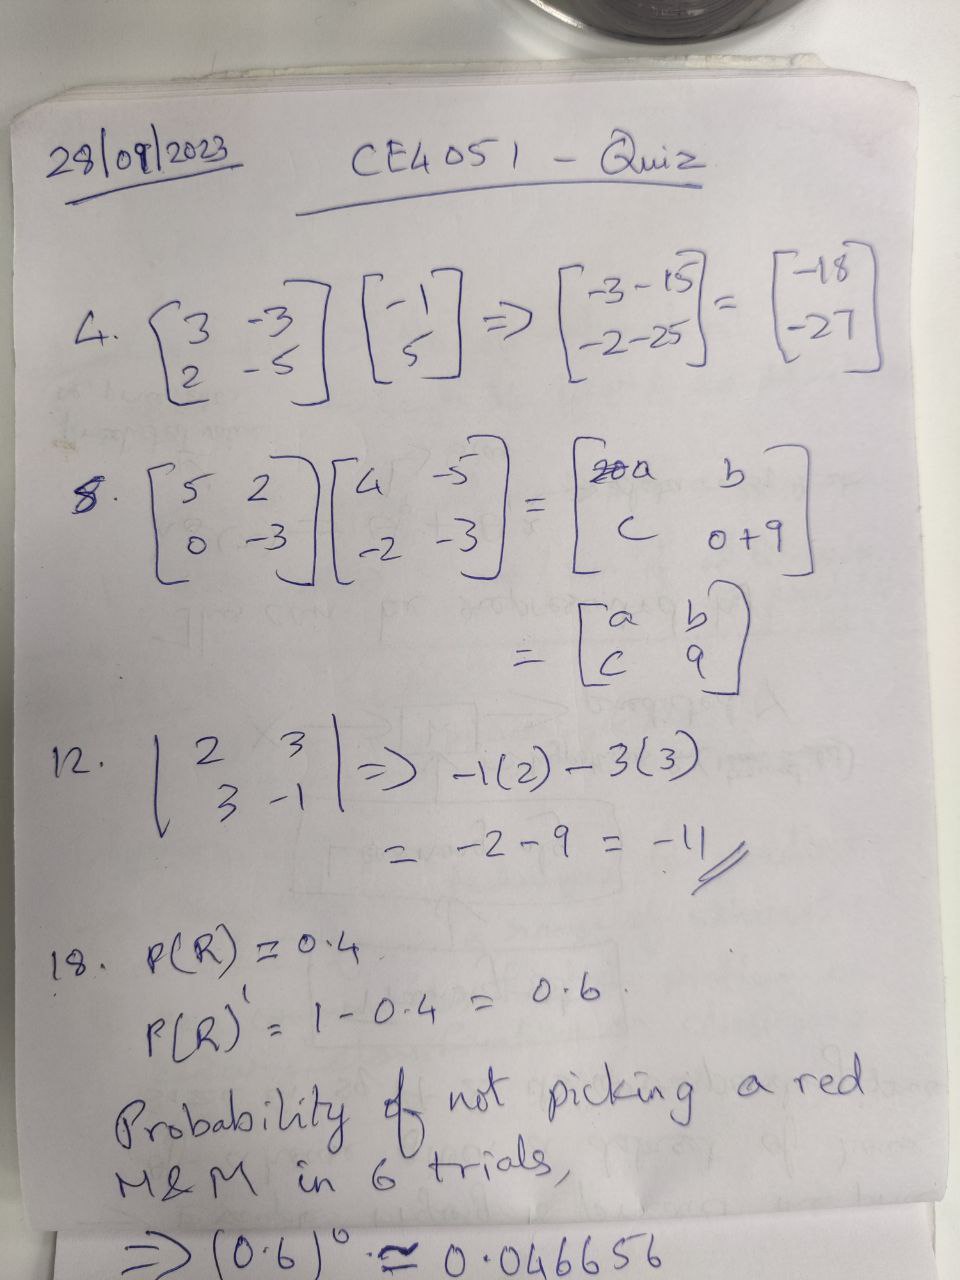 28/09/2023 CE4051 - Quiz
4. [3 -3; 2 -5] [-1; 5] => [-3-15; -2-25] = [-18; -27]
8. [5 2; 0 -3] [4 -5; -2 -3] = [a b; c 0+9]
= [a b; c 9]
12. |2 3; 3 -1| => -1(2) - 3(3)
= -2 - 9 = -11
18. P(R) = 0.4
P(R)' = 1 - 0.4 = 0.6.
Probability of not picking a red
M&M in 6 trials,
=> (0.6)⁶ ≃ 0.046656